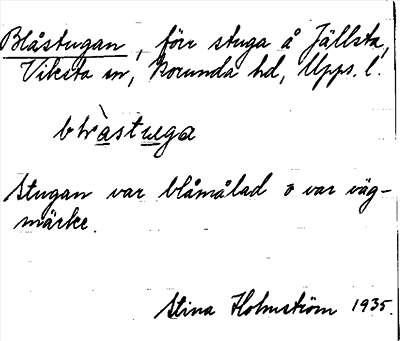 Blåstugan, förr stuga å Jällsta,
Viksta sn, Norunda hd, Upps. l.
blråstuga
Stugan var blåmålad o var väg-
märke.
Stina Holmström 1935.